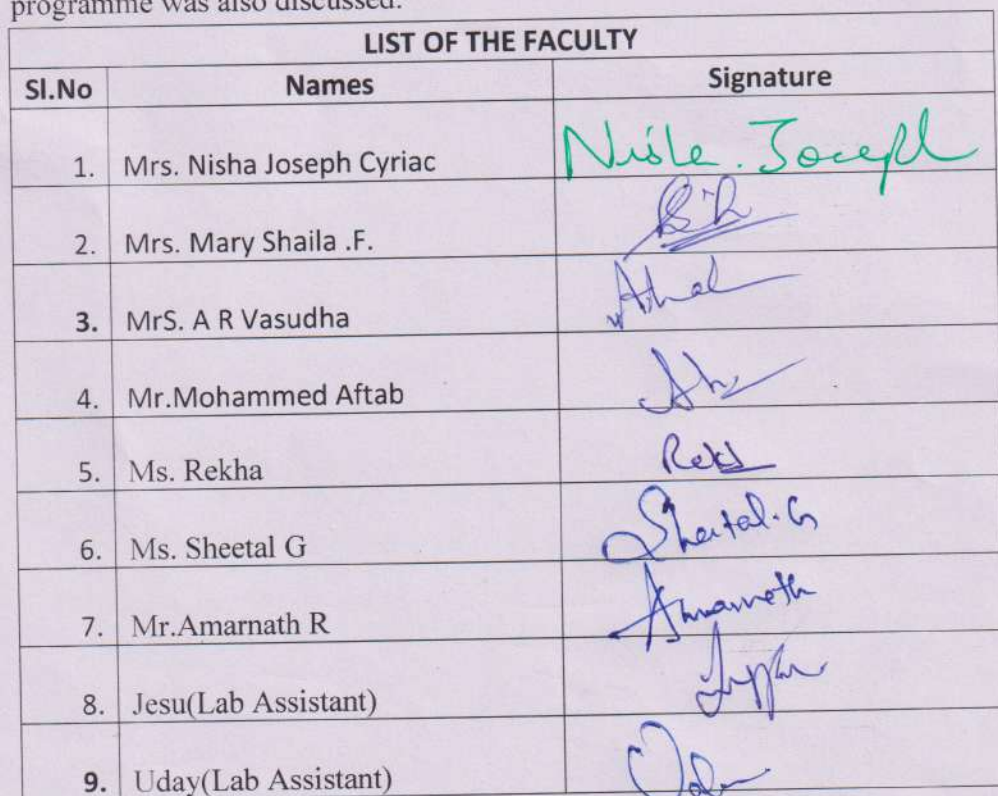 programme was also discussed.
LIST OF THE FACULTY
Sl.No Names Signature
1. Mrs. Nisha Joseph Cyriac Nisha. Joseph
2. Mrs. Mary Shaila .F.
3. MrS. A R Vasudha
4. Mr.Mohammed Aftab
5. Ms. Rekha
6. Ms. Sheetal G Sheetal.G
7. Mr.Amarnath R Amarnath
8. Jesu(Lab Assistant)
9. Uday(Lab Assistant)